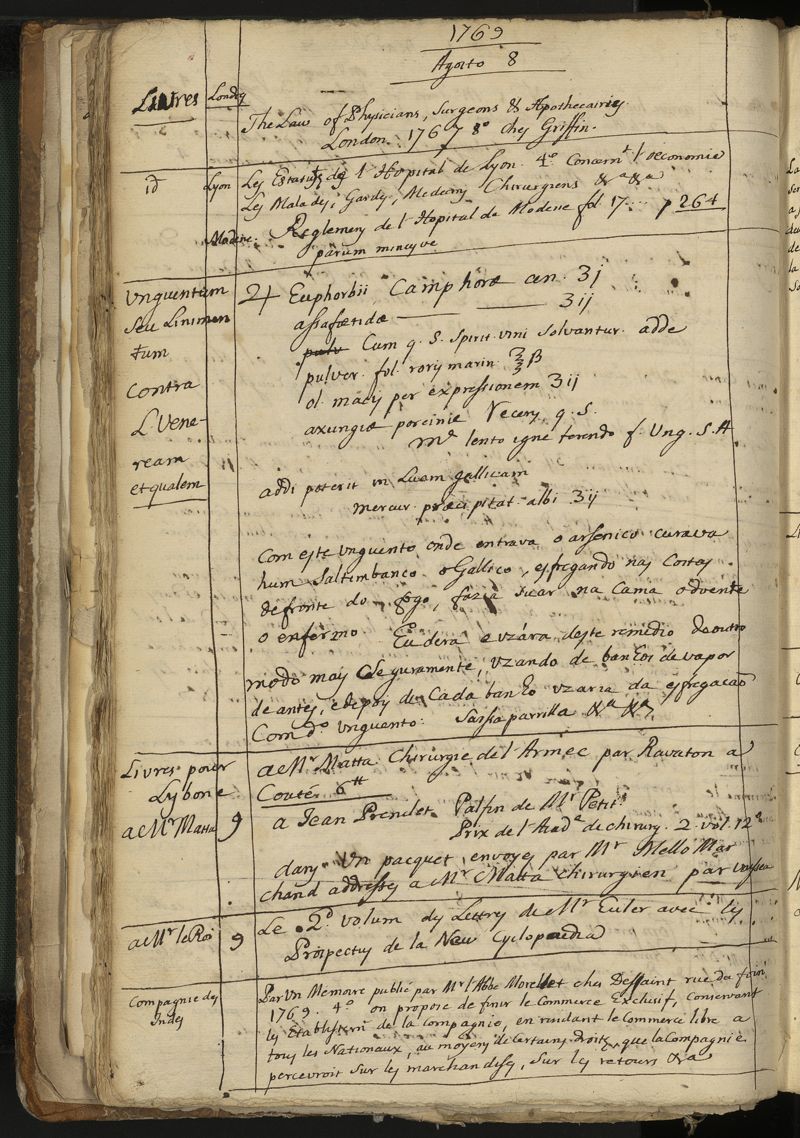 1769
Agosto 8
Livres
Londrs
The Law of Physicians, Surgeons & Apothecaries
London. 1767 8º ches Griffin.
id
Lyon
Les Estatuts de l'Hopital de Lyon. 4º Concernt l'oeconomie
les Malades, Gardes, Medecins Chirurgiens &a &a
Modene.
Reglemens de l'Hopital de Modene fol 17... p 264
parum mincyve
Unguentum
seu Linimen
tum
contra
L. Vene-
ream
et qualem
♃ Euphorbii Camphoræ an. ʒj
assafœtidæ ——— ——— ʒij
pulv Cum q. S. Spirit. vini solvantur. adde
pulver. fol. roris marin. ℥ β
ol. macis per expressionem ʒij
axungiæ porcinæ Recens q. S.
Me lento igne terendo f. Ung. S. A.
addi poterit in Luem gallicam
mercur. præcipitat. albi ʒij
Com este unguento onde entrava o arsenico curava
hum Saltimbanco o Gallico, esfregando nas Costas
defronte do fogo, fazia suar na Cama o doente
o enfermo. Eu dera e uzára deste remedio de outro
modo mais seguramente, uzando de banhos de vapor
de antes, e depois de Cada banho uzaria da esfregacaõ
Com dº unguento. Salsaparrilla &a &a.
Livres pour
Lysbone
a Mr Matta
9
a Mr Matta Chirurgie de l'Armee par Ravaton a
Couté. 6 tt
a Jean Prenelet Palfin de Mr Petit
Prix de l'Acada de chirurg. 2. vol. 12º
dans Un pacquet envoyé par Mr Mello Mar
chand addresses a Mr Matta chirurgien par
a Mr le Roi
9
Le 2d volum des Lettres de Mr Euler avec les
Prospectus de la New Cyclopædia
Compagnie des
Indes
Par Un Memoire publié par Mr l'Abbe Morellet ches Dessaint rue du foin
1769. 4º on propose de finir le Commerce Exclusif, conservant
les Etablissem de la Compagnie, en rendant le Commerce libre a
tous les Nationaux, au moyens de Certains droits que la Compagnie
percevroit sur les marchandises, sur les retours &a